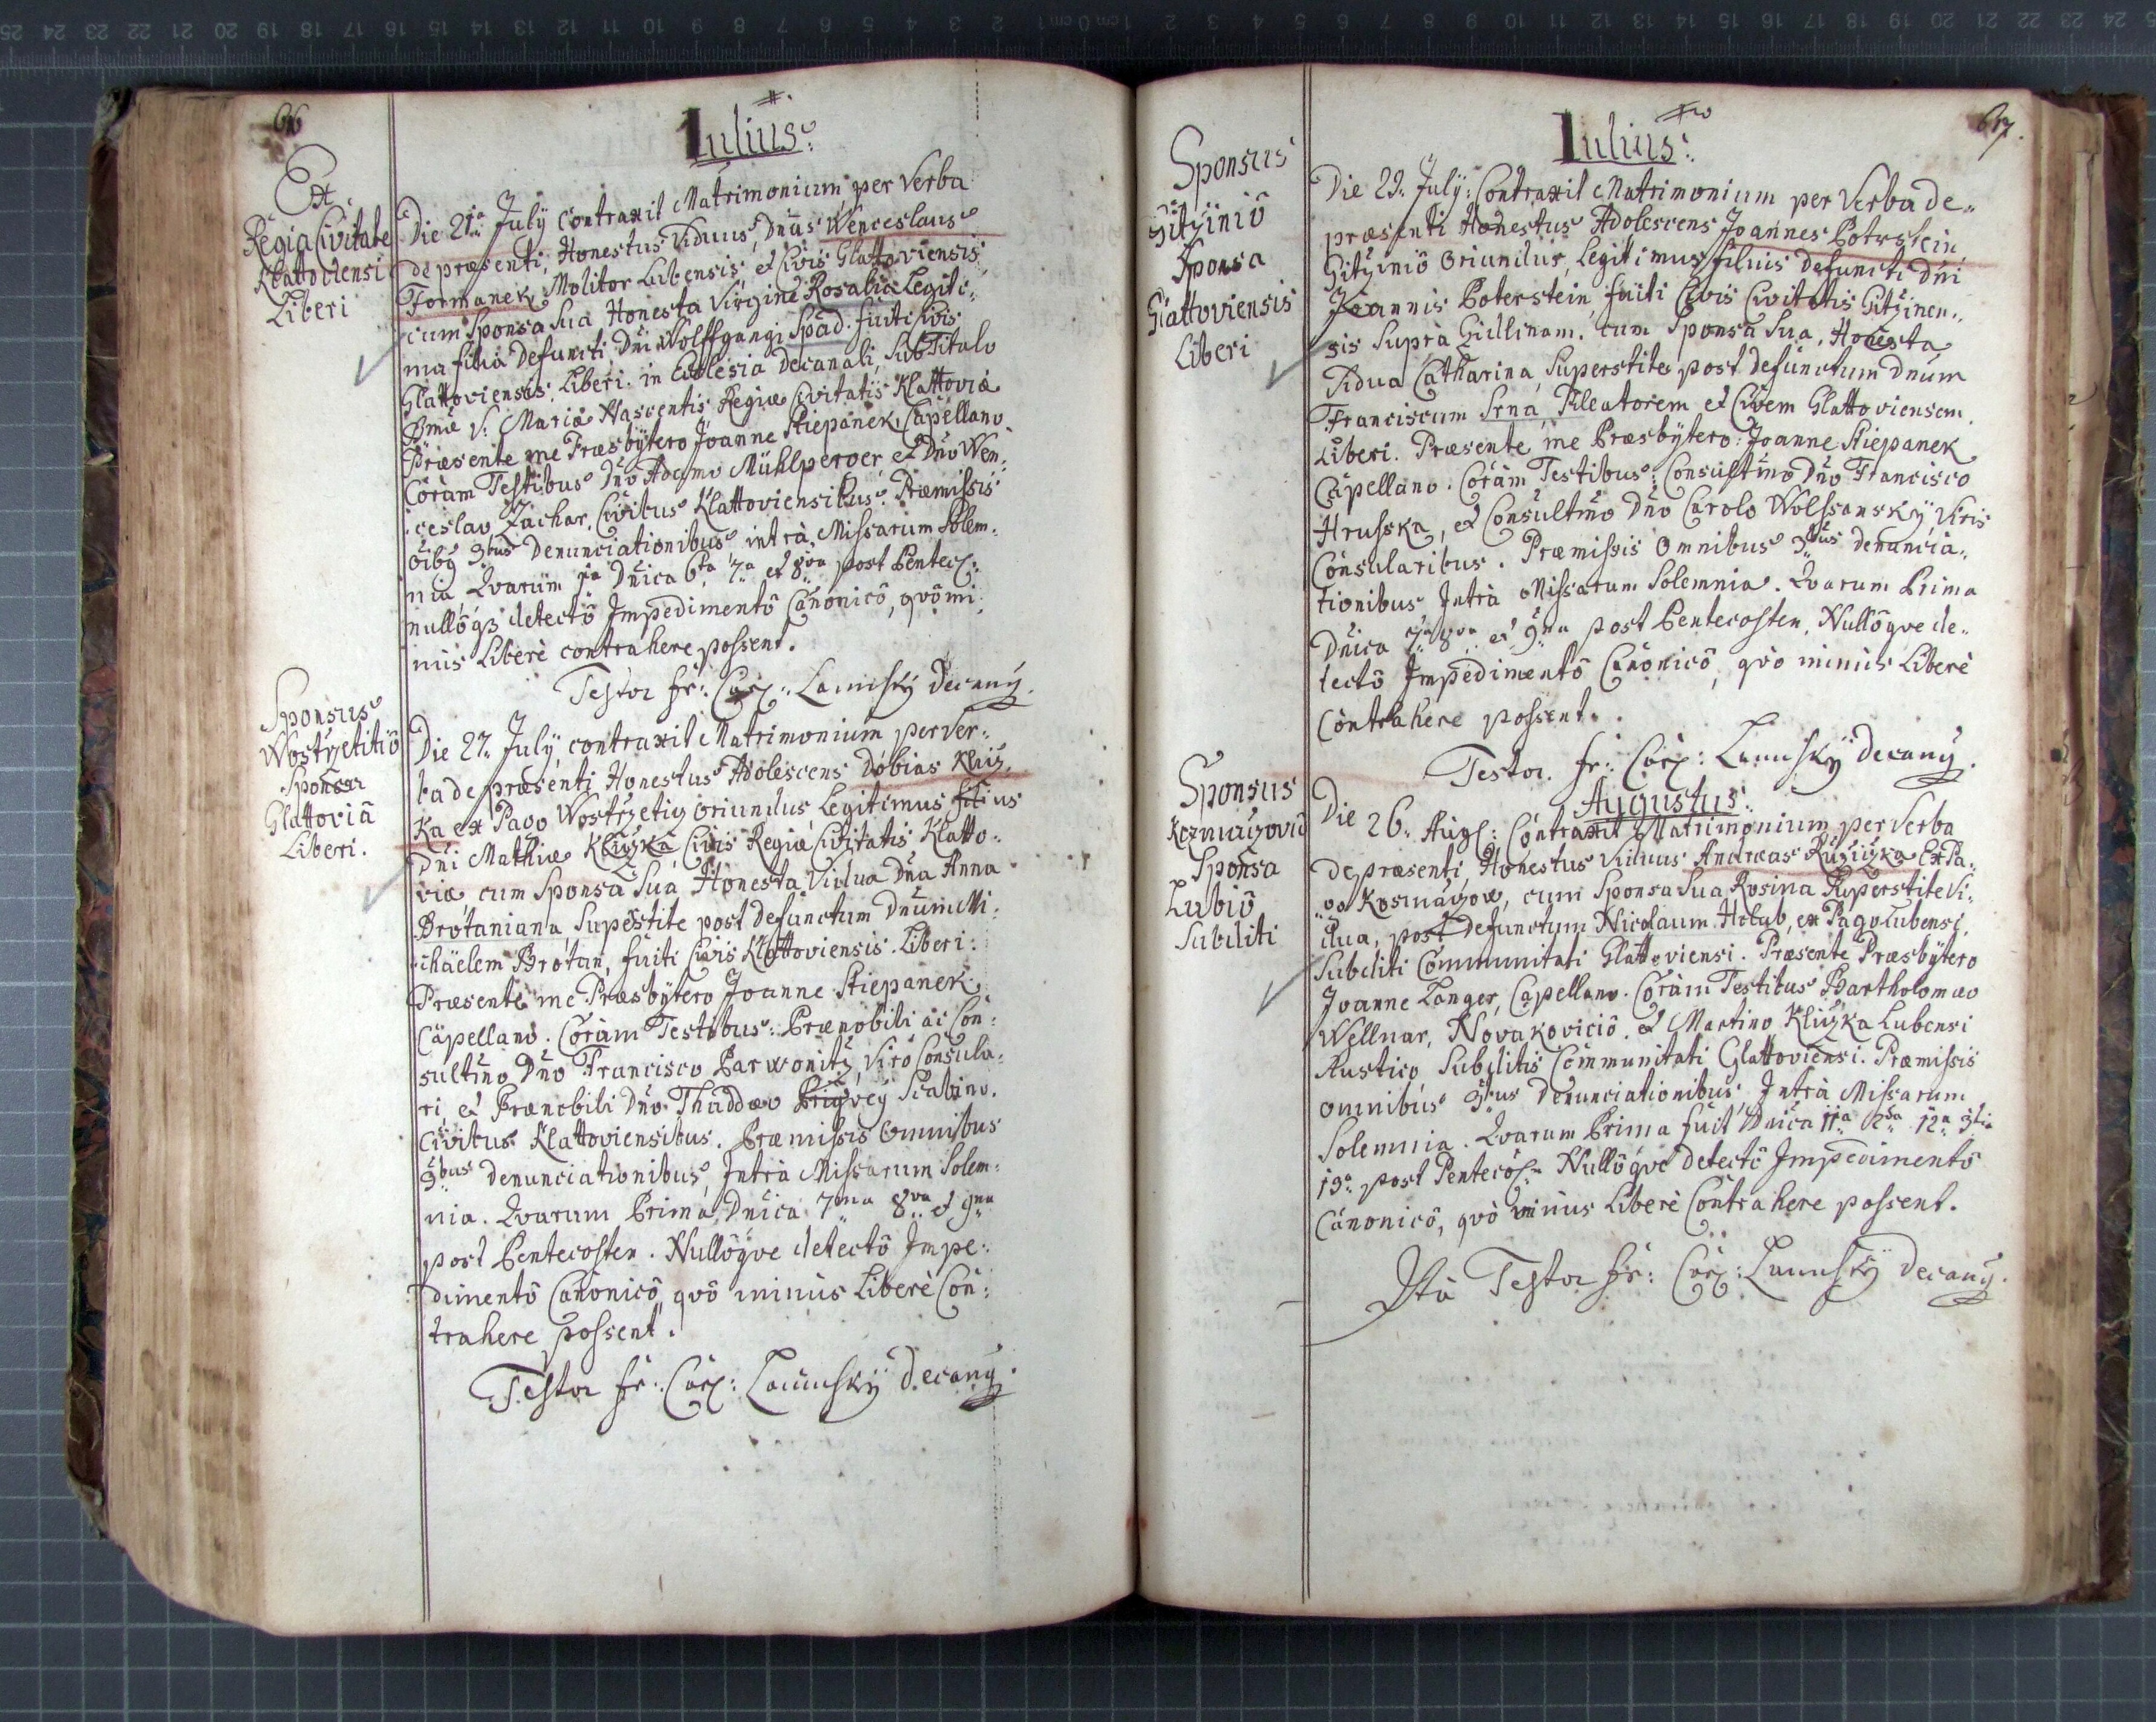 66
Iulius
Ex
Regia Civitate
Klattoviensi
Liberi
Die 21ma July Contraxit Matrimonium per Verba
de præsenti, Honestus Viduus, Dnus Wenceslaus
Formanek Molitor Lubensis et Civis Glattoviensis
cum Sponsa Sua Honesta Virgine Rosalia Legiti:
ma filia Defuncti Dni Wolffgangi Spad. fuiti Civis
Glattoviensis. Liberi. in Ecclesia Decanali, Sub Titulo
Bmæ V: Mariæ Nascentis Regiæ Civitatis Klattoviæ
Præsente me Præsbÿtero Joanne Stiepanek, Capellano
Coràm Testibus Dno Adamo Mühlperger et Dno Wen:
ceslao Zachar, Civibus Klattoviensibus. Præmissis
oibg 3bus Denunciationibus intrà Missarum Solem:
nia Qvarum 1a Dnica 6ta 7a et 8va post Pentec:
nullôq3 detectô Impedimentô Canonicô, qvô mi:
nus Liberè contrahere possent.
Testor Fr: Car: Launsky Decanÿ.
Sponsus
Wostrzetitiô
Sponsa
Glattoviâ
Liberi.
Die 27. July contraxit Matrimonium per Ver:
ba de præsenti Honestus Adolescens Dobias Kliz,
Ka ex Pago Wostrzetig oriundus Legitimus filius
Dni Mathiæ Klizka Civis Regiæ Civitatis Klatto:
viæ, cum Sponsa Sua Honesta Vidua Dna Anna
Brotaniana Supestite post defunctum Dnum Mi:
chäelem Brotan, fuiti Civis Klattoviensis. Liberi:
Præsente me Præsbÿtero Joanne Stiepanek
Capellano. Coràm Testibus: Prænobili ac Con:
sultmo Dno Francisco Parwonitz, Viro Consula:
ri et Prænobili Dno Thaddæo Scabino.
Civibus Klattoviensibus. Præmissis Omnibus
3bus denunciationibus, Intrà Missarum Solem:
nia. Qvarum Prima, Dnica 7ma 8va et 9na
post Pentecosten. Nullôqve detectô Impe:
dimentô Canonicô qvô minùs Liberè Con:
trahere possent.
Testor Fr: Car: Launsky Decanÿ.
67.
Iulius
Sponsus
Gitziniô
Sponsa
Glattoviensis
Liberi
Die 29. July: Contraxit Matrimonium per Verba de,,
præsenti Honestus Adolescens Joannes Poterstein,
Gitziniô Oriundus, Legitimus filius defuncti Dni
Joannis Poterstein, fuiti Civis Civitatis Gitzinen:
sis Suprà Gidlinam. cum Sponsa Sua, Honesta
Vidua Catharina, Superstite post defunctum Dnum
Franciscum Srna, Pileatorem et Civem Glattoviensem.
Liberi. Præsente me Præsbÿtero: Joanne Stiepanek
Capellano. Coràm Testibus: Consultmo Dno Francisco
Hrusska, et Consultmo Dno Carolo Wolssanskÿ, Viris
Consularibus. Præmissis Omnibus 3bus denuncia,,
tionibus, Intrà Missarum Solemnia. Qvarum Prima
Dnica 7a 8va et 9na post Pentecosten, Nullôqve de,,
tectô Impedimentô Canonicô, qvo minùs Liberè
Contrahere possent.
Testor. Fr: Car: Launsky Decanÿ.
Augustus
Sponsus
Kozmaczoviô
Sponsa
Lubiô
Subditi
Die 26. Aug: Contraxit Matrimonium per Verba
de præsenti, Honestus Viduus Andreas Ružiczka Ex Pa:
go Kosmaczow, cum Sponsa Sua Rosina Superstite Vi:
dua, post Defunctum Nicolaum Holub, ex Pago Lubensi.
Subditi Communitati Glattoviensi. Præsente Præsbÿtero
Joanne Langer, Capellano. Coràm Testibus Bartholomæo
Wellnar, Novakoviciô, et Martino Klizka Lubensi
Rustico, Subditis Communitati Glattoviensi. Præmissis
omnibus 3bus Denunciationibus, Intrà Missarum
Solemnia. Qvarum Prima fuit Dnica 11a 2da 12a 3tia
13a post Pentecos: Nullôqve detectô Impedimentô
Canonicô, qvò minùs Liberè Contrahere possent.
Ità Testor Fr: Car: Launsky Decanÿ.